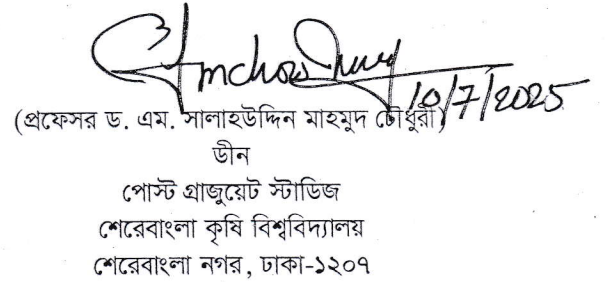 Smchowdhury 10/7/2025
(প্রফেসর ড. এম. সালাহউদ্দিন মাহমুদ চৌধুরী)
ডীন
পোস্ট গ্রাজুয়েট স্টাডিজ
শেরেবাংলা কৃষি বিশ্ববিদ্যালয়
শেরেবাংলা নগর, ঢাকা-১২০৭